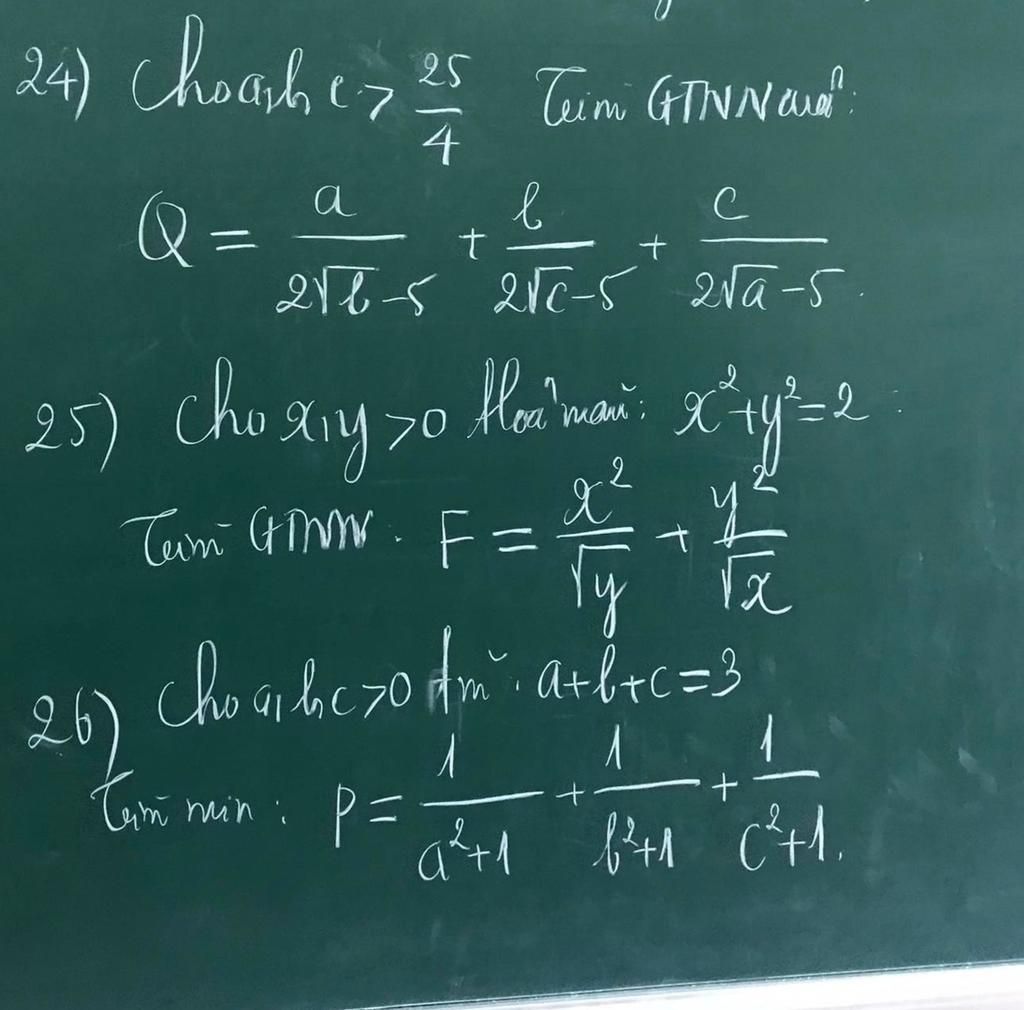 24) Cho a,b,c > 25/4 Tìm GTNN của:
Q = a/(2√b-5) + b/(2√c-5) + c/(2√a-5).
25) Cho x,y>0 thoả mãn: x²+y²=2.
Tìm GTNN: F = x²/√y + y²/√x
26) Cho a,b,c>0 tm: a+b+c=3
Tìm min: P = 1/(a²+1) + 1/(b²+1) + 1/(c²+1).